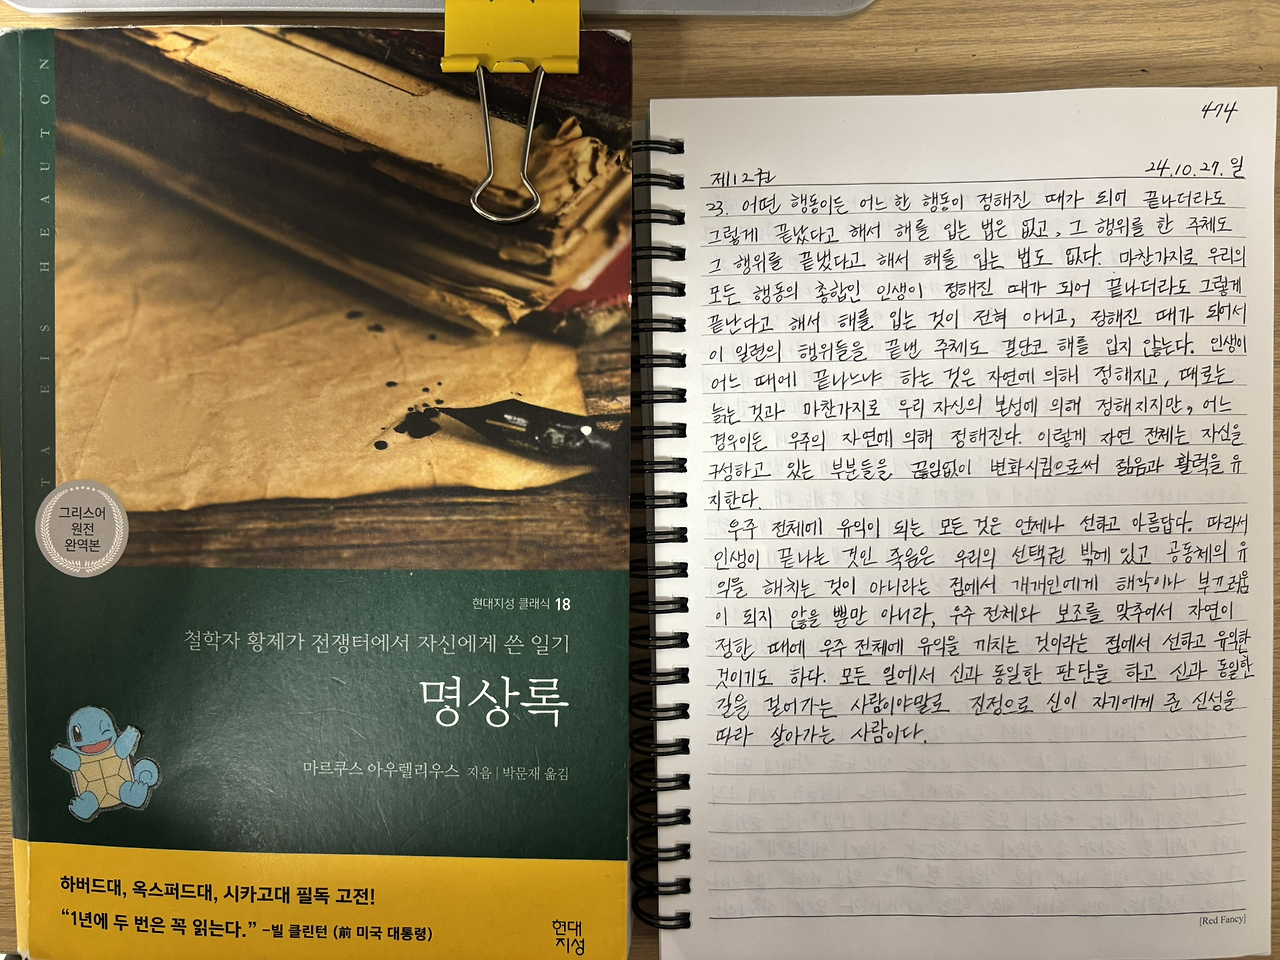 TA EIS HEAUTON
그리스어
원전
완역본
현대지성 클래식 18
철학자 황제가 전쟁터에서 자신에게 쓴 일기
명상록
마르쿠스 아우렐리우스 지음 | 박문재 옮김
하버드대, 옥스퍼드대, 시카고대 필독 고전!
“1년에 두 번은 꼭 읽는다.” –빌 클린턴 (前 미국 대통령)
현대
지성
474
제12권 24.10.27. 일
23. 어떤 행동이든 어느 한 행동이 정해진 때가 되어 끝나더라도
그렇게 끝났다고 해서 해를 입는 법은 없고, 그 행위를 한 주체도
그 행위를 끝냈다고 해서 해를 입는 법도 없다. 마찬가지로 우리의
모든 행동의 총합인 인생이 정해진 때가 되어 끝나더라도 그렇게
끝난다고 해서 해를 입는 것이 전혀 아니고, 정해진 때가 되어서
이 일련의 행위들을 끝낸 주체도 결단코 해를 입지 않는다. 인생이
어느 때에 끝나느냐 하는 것은 자연에 의해 정해지고, 때로는
늙는 것과 마찬가지로 우리 자신의 본성에 의해 정해지지만, 어느
경우이든 우주의 자연에 의해 정해진다. 이렇게 자연 전체는 자신을
구성하고 있는 부분들을 끊임없이 변화시킴으로써 젊음과 활력을 유
지한다.
우주 전체에 유익이 되는 모든 것은 언제나 선하고 아름답다. 따라서
인생이 끝나는 것인 죽음은 우리의 선택권 밖에 있고 공동체의 유
익을 해치는 것이 아니라는 점에서 개개인에게 해악이나 부끄러움
이 되지 않을 뿐만 아니라, 우주 전체와 보조를 맞추어서 자연이
정한 때에 우주 전체에 유익을 끼치는 것이라는 점에서 선하고 유익한
것이기도 하다. 모든 일에서 신과 동일한 판단을 하고 신과 동일한
길을 걸어가는 사람이야말로 진정으로 신이 자기에게 준 신성을
따라 살아가는 사람이다.
[Red Fancy]